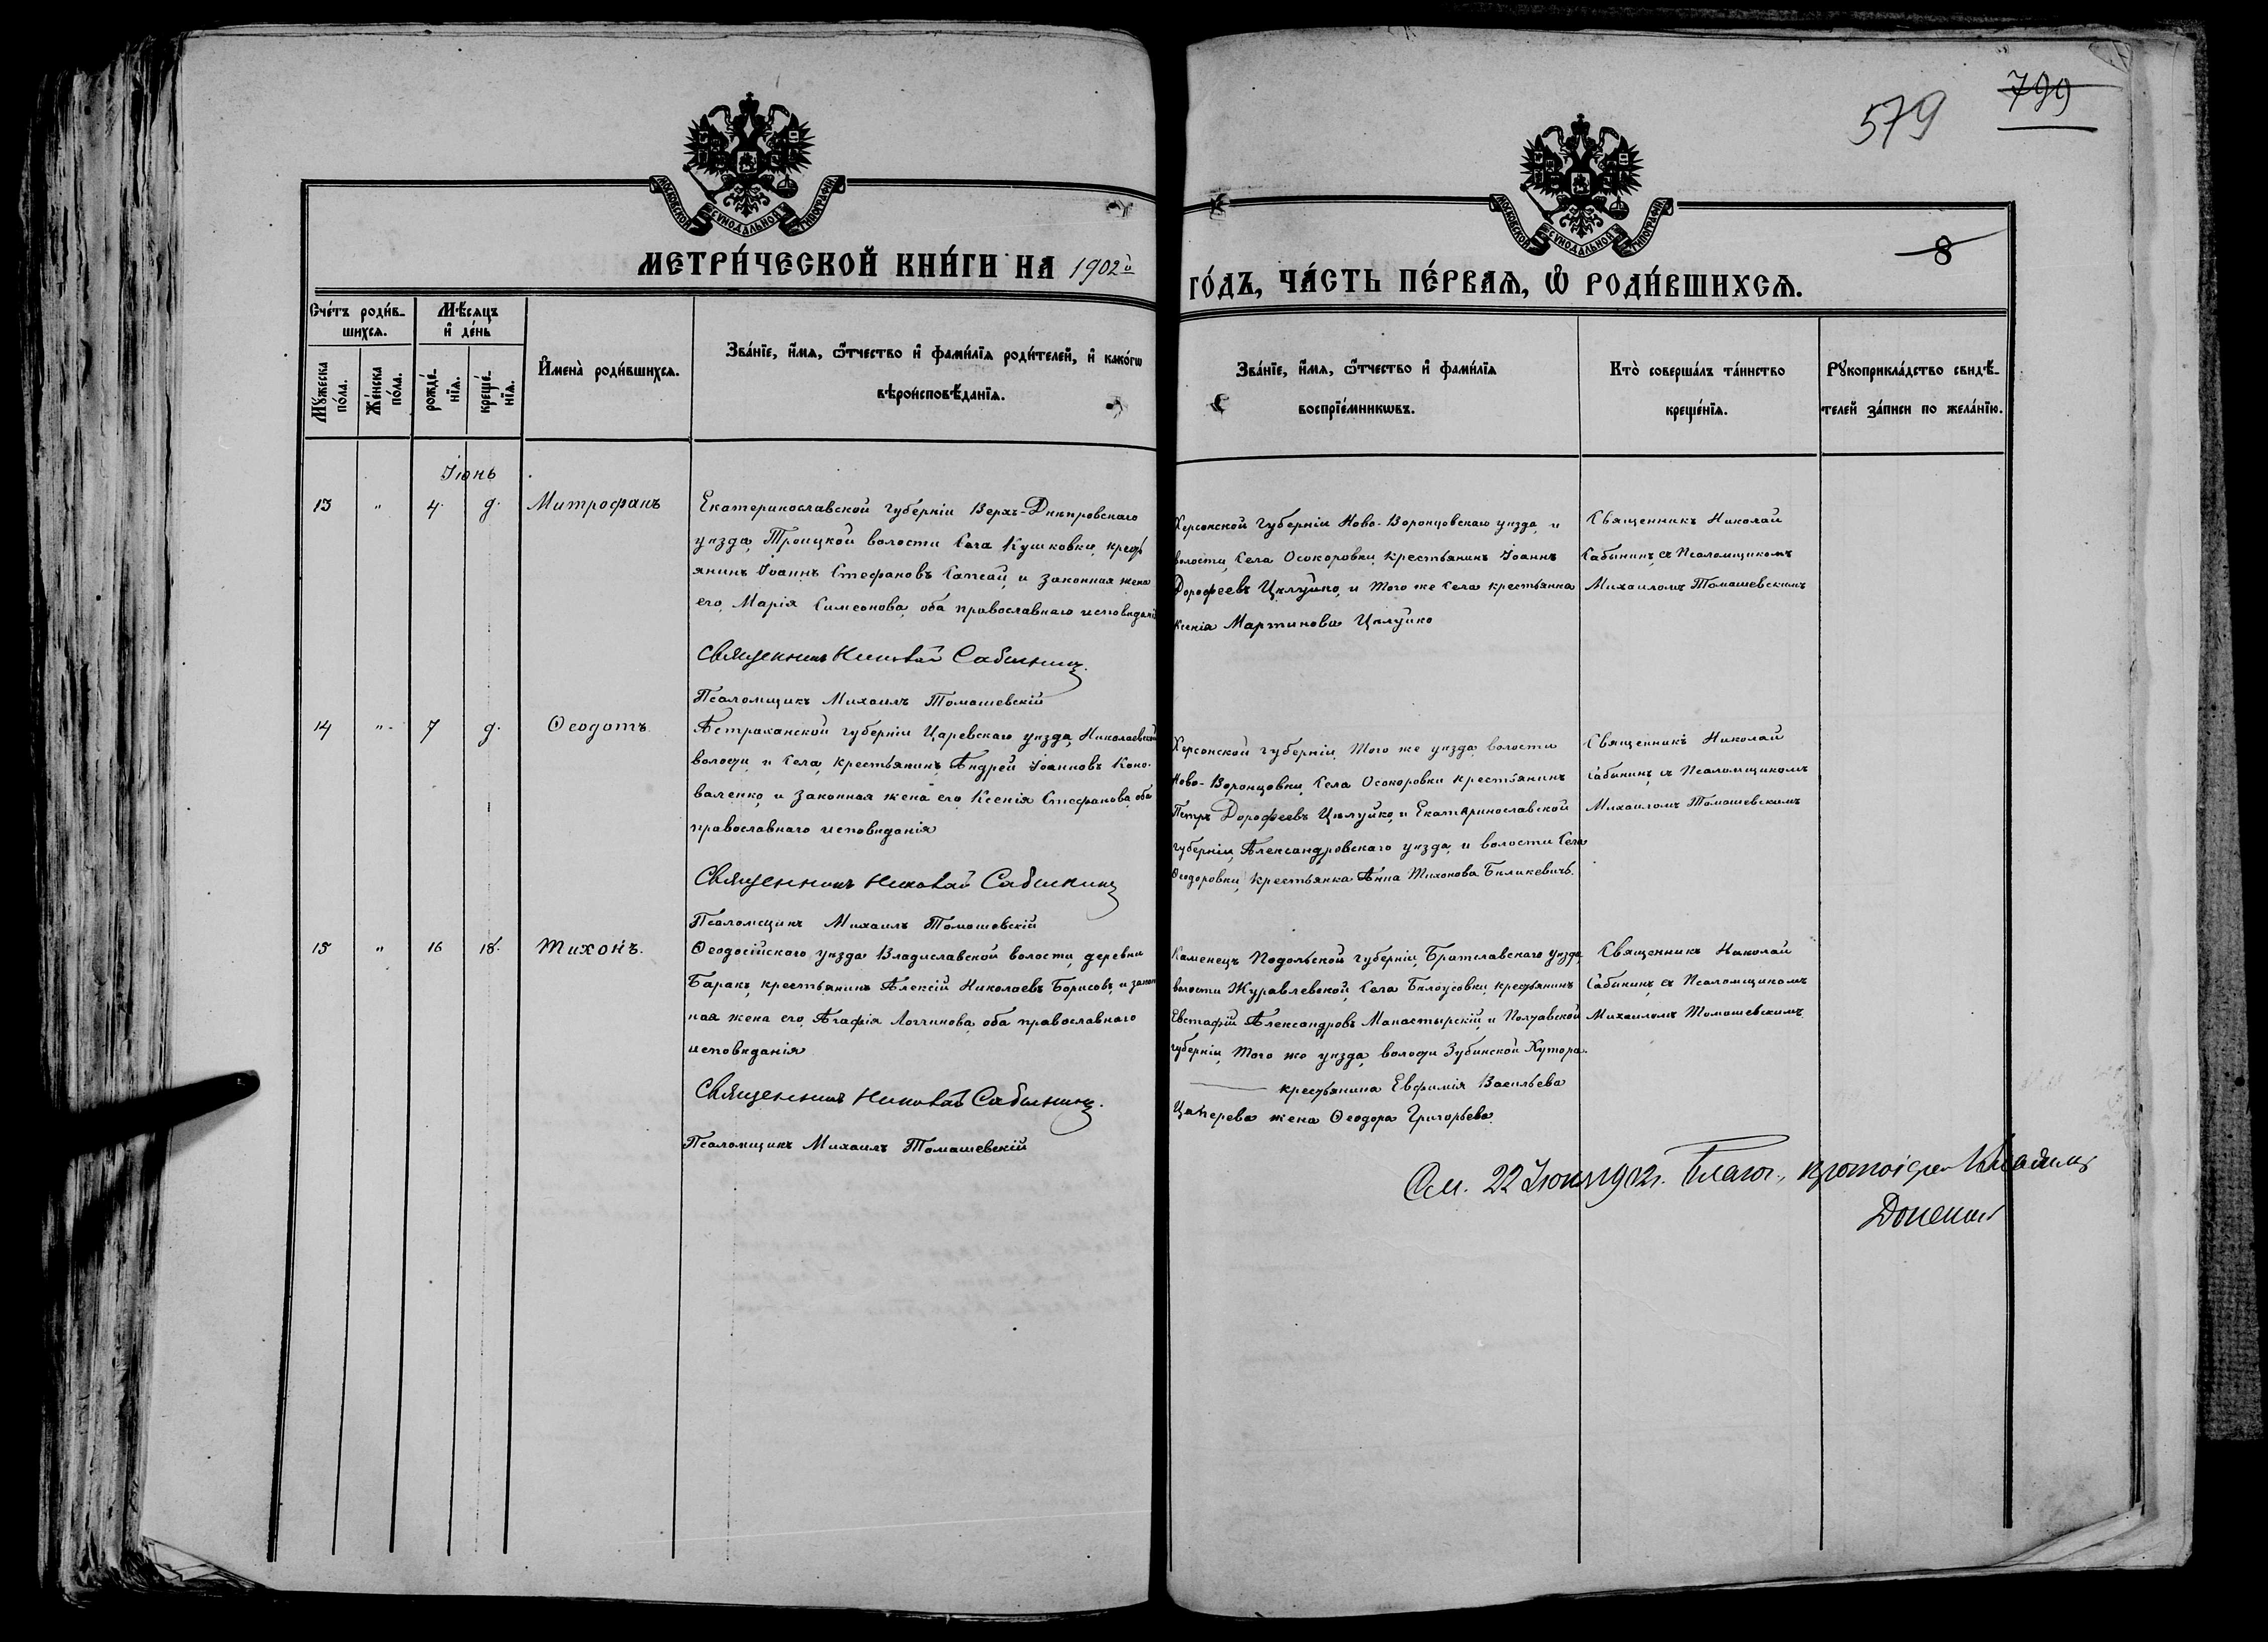 579
799
МОСКОВСКОЙ СѴНОДАЛЬНОЙ ТИПОГРАФІИ
МОСКОВСКОЙ СѴНОДАЛЬНОЙ ТИПОГРАФІИ
8
МЕТРИ́ЧЕСКОЙ КНИ́ГИ НА 1902й
ГО́ДЪ, ЧА́СТЬ ПЕ́РВАѦ, Ѡ РОДИ́ВШИХСѦ.
Сче́тъ роди́в-
шихсѧ.
Мѣ́сѧцъ
и҆ де́нь
Мꙋ́жеска
по́ла.
Же́нска
по́ла.
рожде́-
нїѧ.
креще́-
нїѧ.
И҆мена̀ роди́вшихсѧ.
Зва́нїе, и҆́мѧ, ѻ҆́тчество и҆ фами́лїѧ роди́телей, и҆ како́гѡ
вѣроисповѣ́данїѧ.
Зва́нїе, и҆́мѧ, ѻ҆́тчество и҆ фами́лїѧ
воспрїе́мникѡвъ.
Кто̀ соверша́лъ та́инство
креще́нїѧ.
Рꙋкоприкла́дство свидѣ́-
телей за́писи по жела́нїю.
Іюнь
13 " 4. 9. Митрофанъ
Екатеринославской губерніи Верхъ-Днѣпровскаго
уѣзда, Троицкой волости села Кушковки, кресть
янинъ Іоаннъ Стефановъ Сапсай, и законная жена
его, Марія Симеонова, оба православнаго исповѣданія
Священникъ Николай Сабынинъ.
Псаломщикъ Михаилъ Томашевскій
Херсонской губерніи Ново-Воронцовскаго уѣзда, и
волости, села Осокоровки, крестьянинъ Іоаннъ
Дорофеевъ Цѣлуйко, и того же села крестьянка
Ксенія Мартинова Цѣлуйко
Священникъ Николай
Сабынинъ, съ Псаломщикомъ
Михаиломъ Томашевскимъ
14 " 7 9. Ѳеодотъ
Астраханской губерніи Царевскаго уѣзда, Николаевской
волости, и села, крестьянинъ, Андрей Іоанновъ Коно-
валенко, и законная жена его Ксенія Стефанова, оба
православнаго исповѣданія
Священникъ Николай Сабынинъ
Псаломщикъ Михаилъ Томашевскій
Херсонской губерніи, того же уѣзда, волости
Ново-Воронцовки, села Осокоровки крестьянинъ
Петръ Дорофеевъ Цѣлуйко, и Екатеринославской
губерніи, Александровскаго уѣзда, и волости села
Ѳеодоровки, крестьянка Анна Тихонова Биликевичъ.
Священникъ Николай
Сабынинъ, съ Псаломщикомъ
Михаиломъ Томашевскимъ
15 " 16 18. Тихонъ.
Ѳеодосійскаго уѣзда Владиславской волости, деревни
Баракъ, крестьянинъ Алексій Николаевъ Борисовъ, и закон
ная жена его, Агафія Логгинова, оба православнаго
исповѣданія
Священникъ Николай Сабынинъ.
Псаломщикъ Михаилъ Томашевскій
Каменецъ Подольской губерніи, Братславскаго уѣзда,
волости Журавлевской, села Бѣлоусовки, крестьянинъ
Евстафій Александровъ Манастырскій, и Полтавской
губерніи, того же уѣзда, волости Зубинской Хутора.
крестьянина Евфимія Васильева
жена Ѳеодора Григорьева.
Священникъ Николай
Сабынинъ, съ Псаломщикомъ
Михаиломъ Томашевскимъ
См. 22 Іюня 1902 г. Благоч., протоіерей